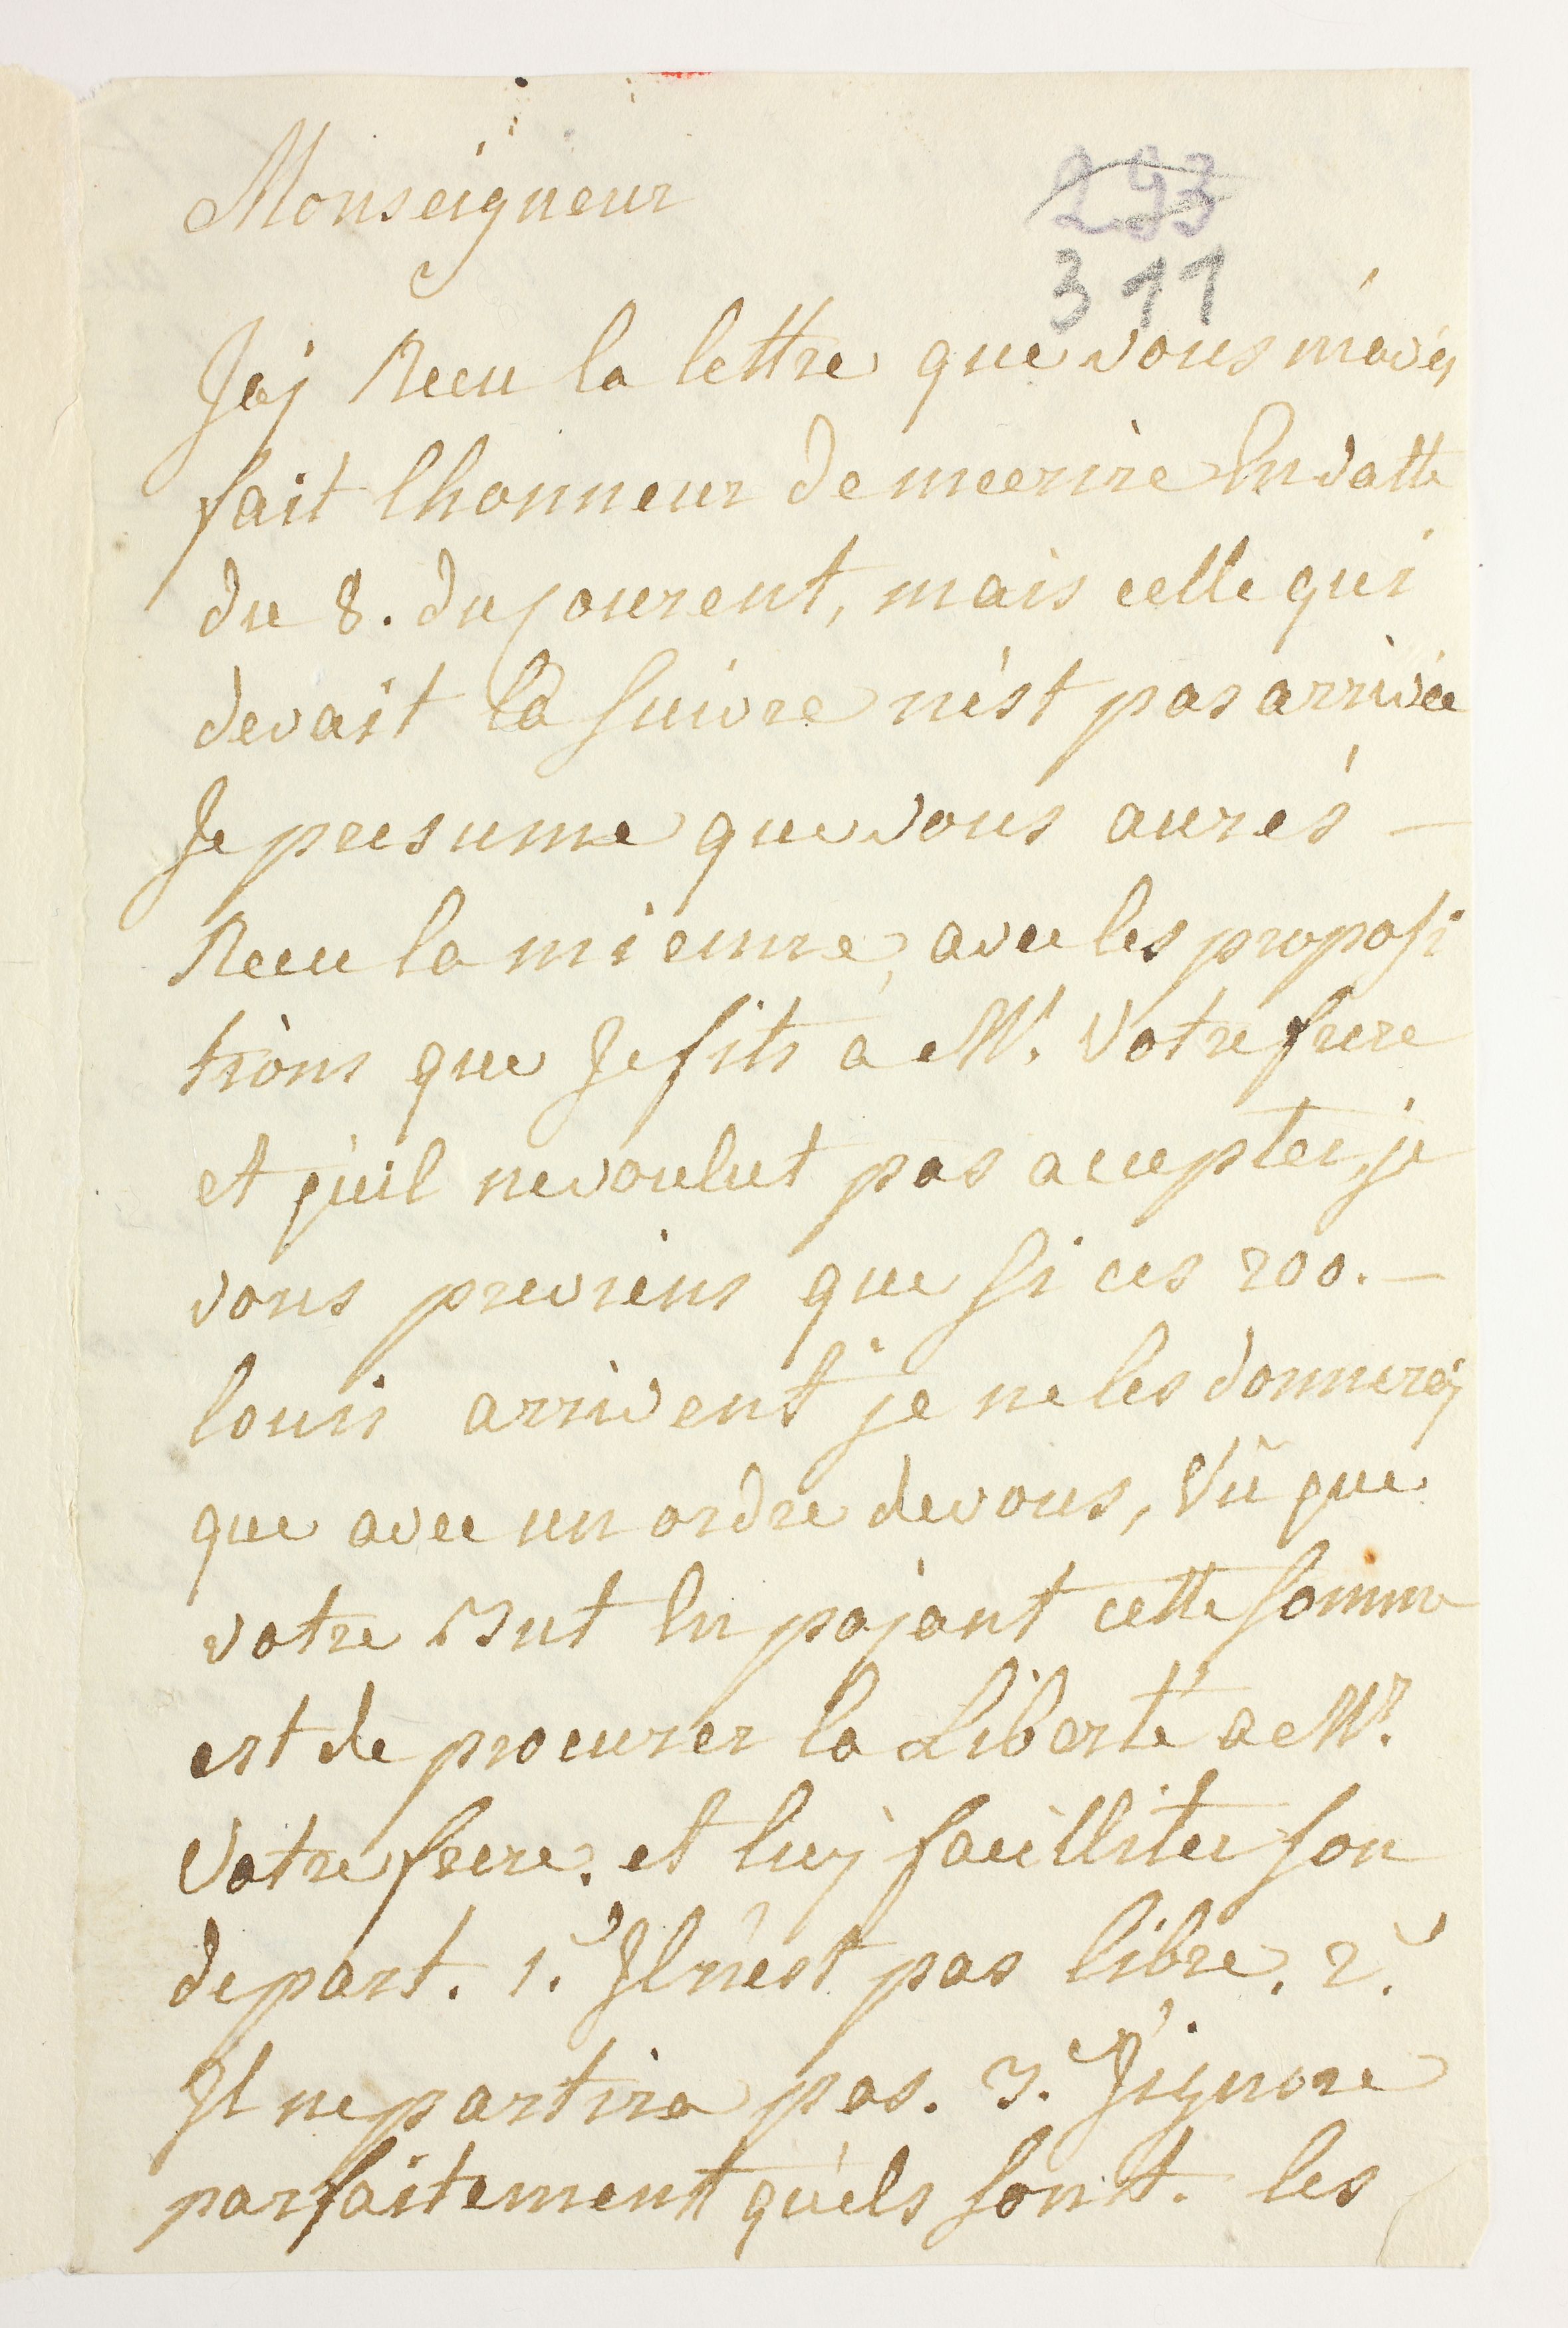 Monseigneur
293
311
Jaj Recu la lettre que vous m'avés
fait lhonneur de mecrire En datte
du 8. du courent, mais celle qui
devait la suivre n'est pas arrivée
Je presume que vous aurés —
Recu la mienne, avec les proposi
tions que Je fits a Mr. Votre frere
et qu'il ne voulut pas accepter, je
vous previens que si ces 200. —
louis arrivent je ne les donnerej
que avec un ordre de vous, Vû que
votre But En pajant cette somme
est de procurer la Liberté a Mr.
Votre frere. et luj facilliter son
depart. 1.° Il n'est pas libre. 2.°
Il ne partira pas. 3.° J'ignore
parfaitement quels sont. les